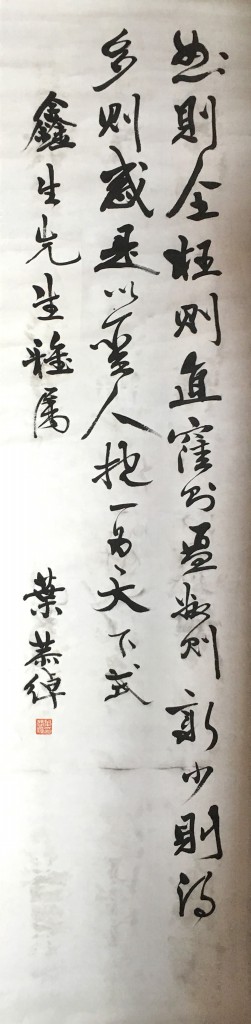 曲則全枉則直窪則盈敝則新少則得
多則惑是以聖人抱一為天下式
鑫生先生雅属
葉恭綽